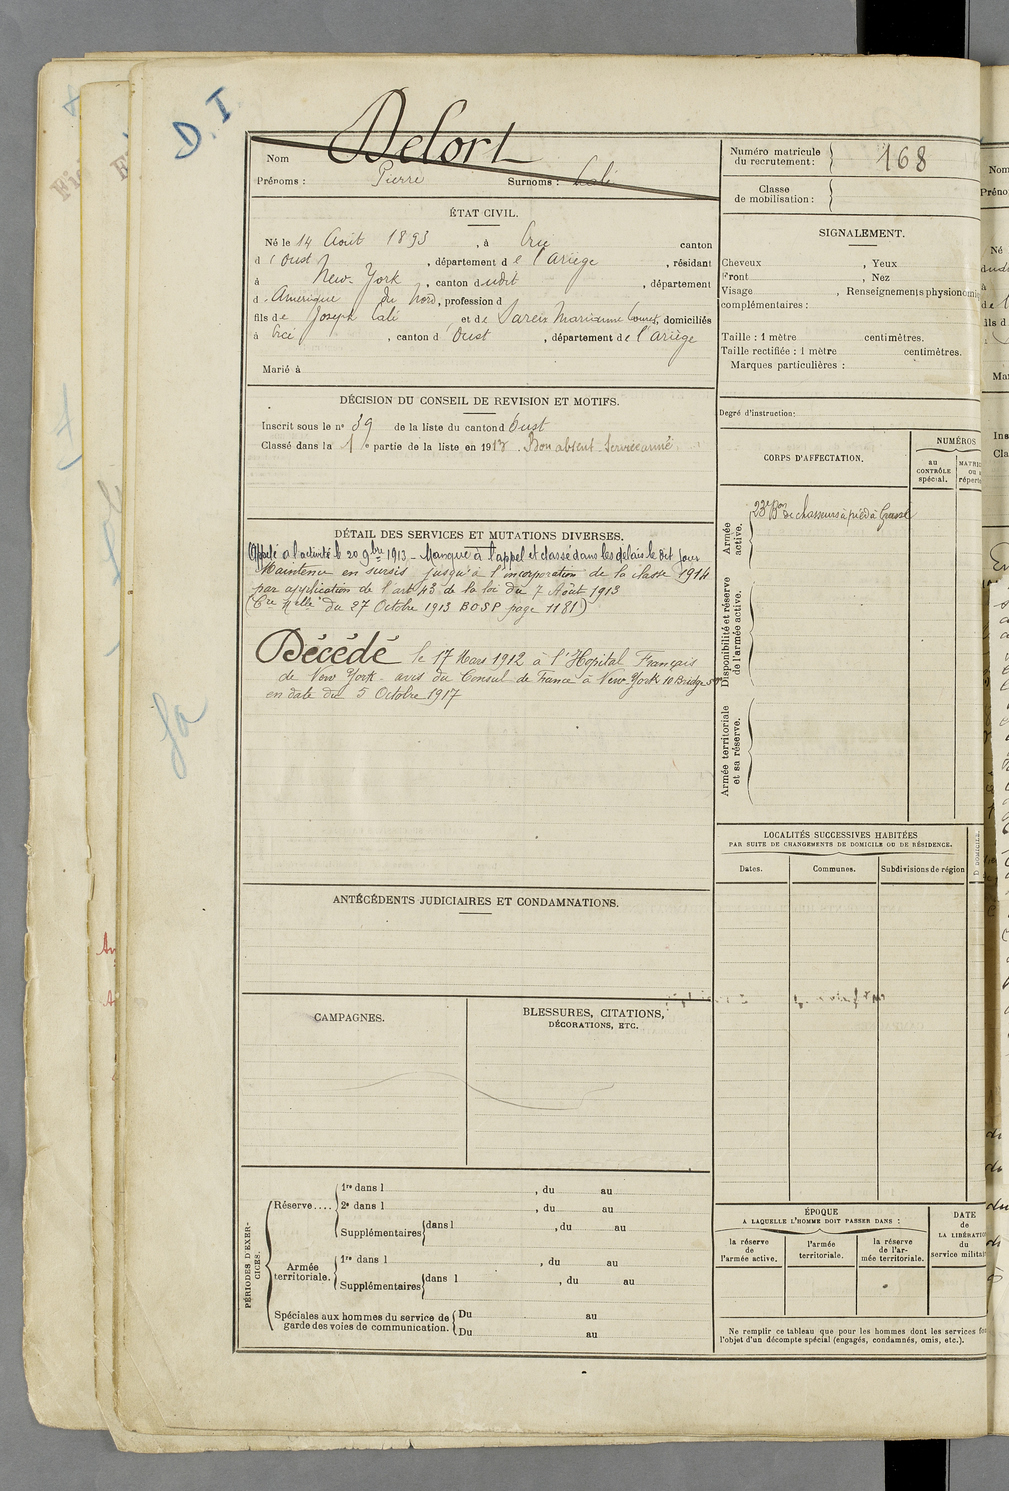 D.I
Nom Delort
Prénoms : Pierre Surnoms : Cali
Numéro matricule
du recrutement : 168
Classe
de mobilisation :
ÉTAT CIVIL.
Né le 14 Août 1893, à Ercé canton
d'Oust, département de l'Ariège, résidant
à New-York, canton dudit, département
d. Amérique du Nord, profession d
fils de Joseph Cali et de Sarein Marianne, domiciliés
à Ercé, canton d'Oust, département de l'Ariège
Marié à
SIGNALEMENT.
Cheveux, Yeux
Front, Nez
Visage, Renseignements physionomi
complémentaires :
Taille : 1 mètre centimètres.
Taille rectifiée : 1 mètre centimètres.
Marques particulières :
DÉCISION DU CONSEIL DE REVISION ET MOTIFS.
Inscrit sous le nº 39 de la liste du canton d'Oust
Classé dans la 1e partie de la liste en 1913. Bon absent Service armé
Degré d'instruction :
CORPS D'AFFECTATION.
NUMÉROS
au
CONTRÔLE
spécial.
MATRI
ou
répert
DÉTAIL DES SERVICES ET MUTATIONS DIVERSES.
Appelé à l'activité le 20 9bre 1913 - Manque à l'appel et classé dans les délais le dit jour
Maintenu en sursis jusqu'à l'incorporation de la classe 1914
par application de l'art 43 de la loi du 7 Août 1913
(Cre Melle du 27 Octobre 1913 BOSP page 1181)
Décédé le 17 Mars 1912 à l'Hôpital Français
de New York - avis du Consul de France à New-York 10 Bridge St
en date du 5 Octobre 1917
Armée
active.
23e Bon de chasseurs à pied à Grasse
Disponibilité et réserve
de l'armée active.
Armée territoriale
et sa réserve.
LOCALITÉS SUCCESSIVES HABITÉES
PAR SUITE DE CHANGEMENTS DE DOMICILE OU DE RÉSIDENCE.
Dates. Communes. Subdivisions de région
D. DOMICILE.
ANTÉCÉDENTS JUDICIAIRES ET CONDAMNATIONS.
CAMPAGNES.
BLESSURES, CITATIONS,
DÉCORATIONS, ETC.
PÉRIODES D'EXER-
CICES.
Réserve....
1re dans l, du au
2e dans l, du au
Supplémentaires dans l, du au
Armée
territoriale.
1re dans l, du au
Supplémentaires dans l, du au
Spéciales aux hommes du service de
garde des voies de communication.
Du au
Du au
ÉPOQUE
A LAQUELLE L'HOMME DOIT PASSER DANS :
la réserve
de
l'armée active.
l'armée
territoriale.
la réserve
de l'ar-
mée territoriale.
DATE
de
LA LIBÉRATI
du
service militai
Ne remplir ce tableau que pour les hommes dont les services
l'objet d'un décompte spécial (engagés, condamnés, omis, etc.).